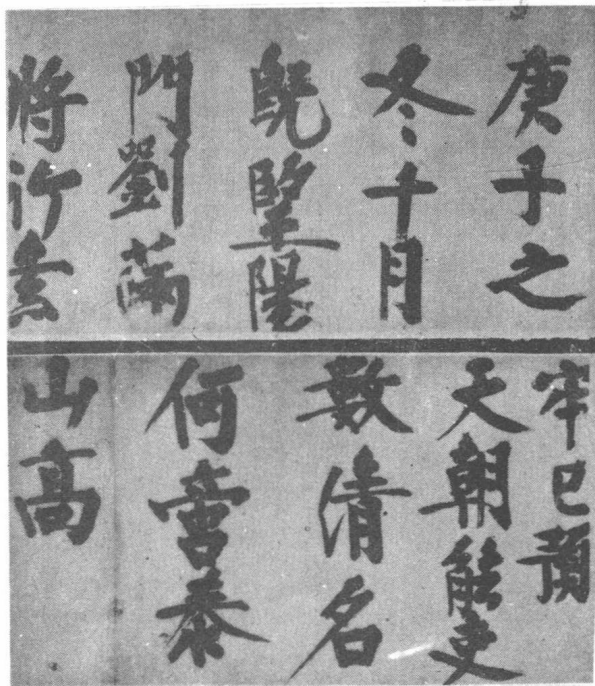 庚子之
冬十月
既朢陽
門劉滿
將行
牢已預
天朝能吏
數清名
何啻泰
山高